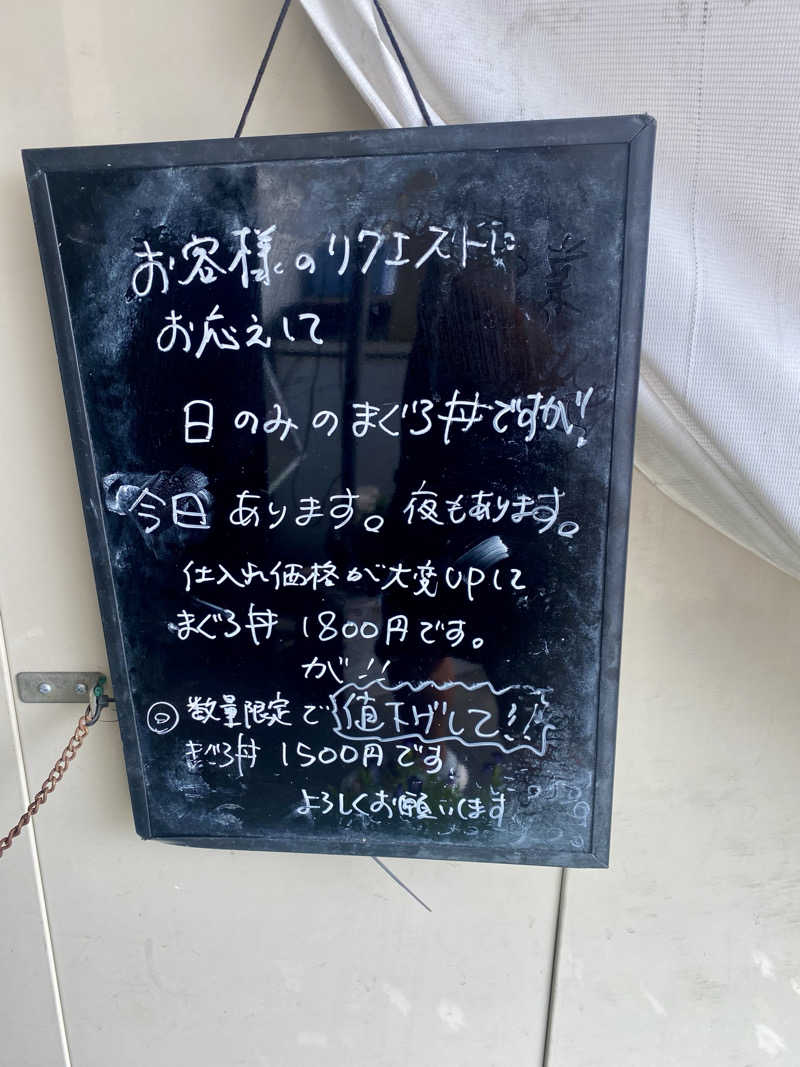 お客様のリクエストに
お応えして
日のみのまぐろ丼ですが!!
今日あります。夜もあります。
仕入れ価格が大変UPして
まぐろ丼 1800円です。
が!!
◎数量限定で値下げして!!
まぐろ丼 1500円です。
よろしくお願いします